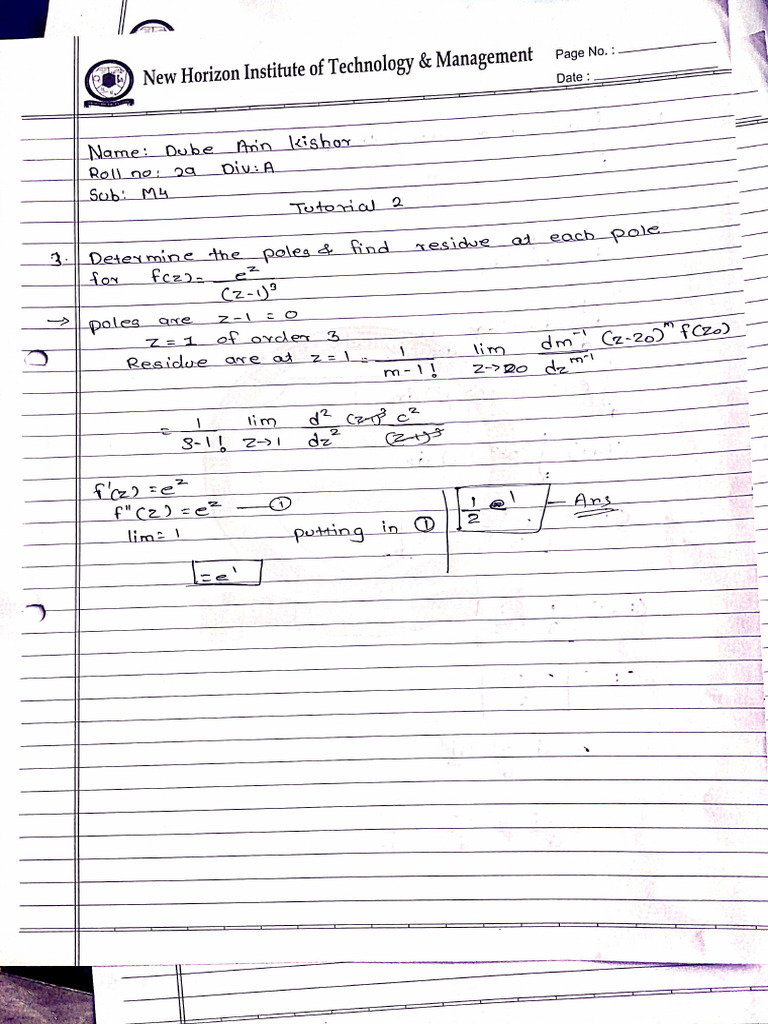 New Horizon Institute of Technology & Management Page No. :
Date :
Name: Dube Arin Kishor
Roll no: 29 Div: A
Sub: M4
Tutorial 2
3. Determine the poles & find residue at each pole
for f(z) = e^z / (z-1)^3
→ poles are z-1 = 0
z = 1 of order 3
Residue are at z = 1 = 1/m-1! lim z→z0 dm^-1/dz^m-1 (z-z0)^m f(z0)
= 1/3-1! lim z→1 d^2/dz^2 (z-1)^3 e^z/(z-1)^3
f'(z) = e^z
f"(z) = e^z — ①
lim = 1 putting in ①
= e^1
1/2 e^1 — Ans